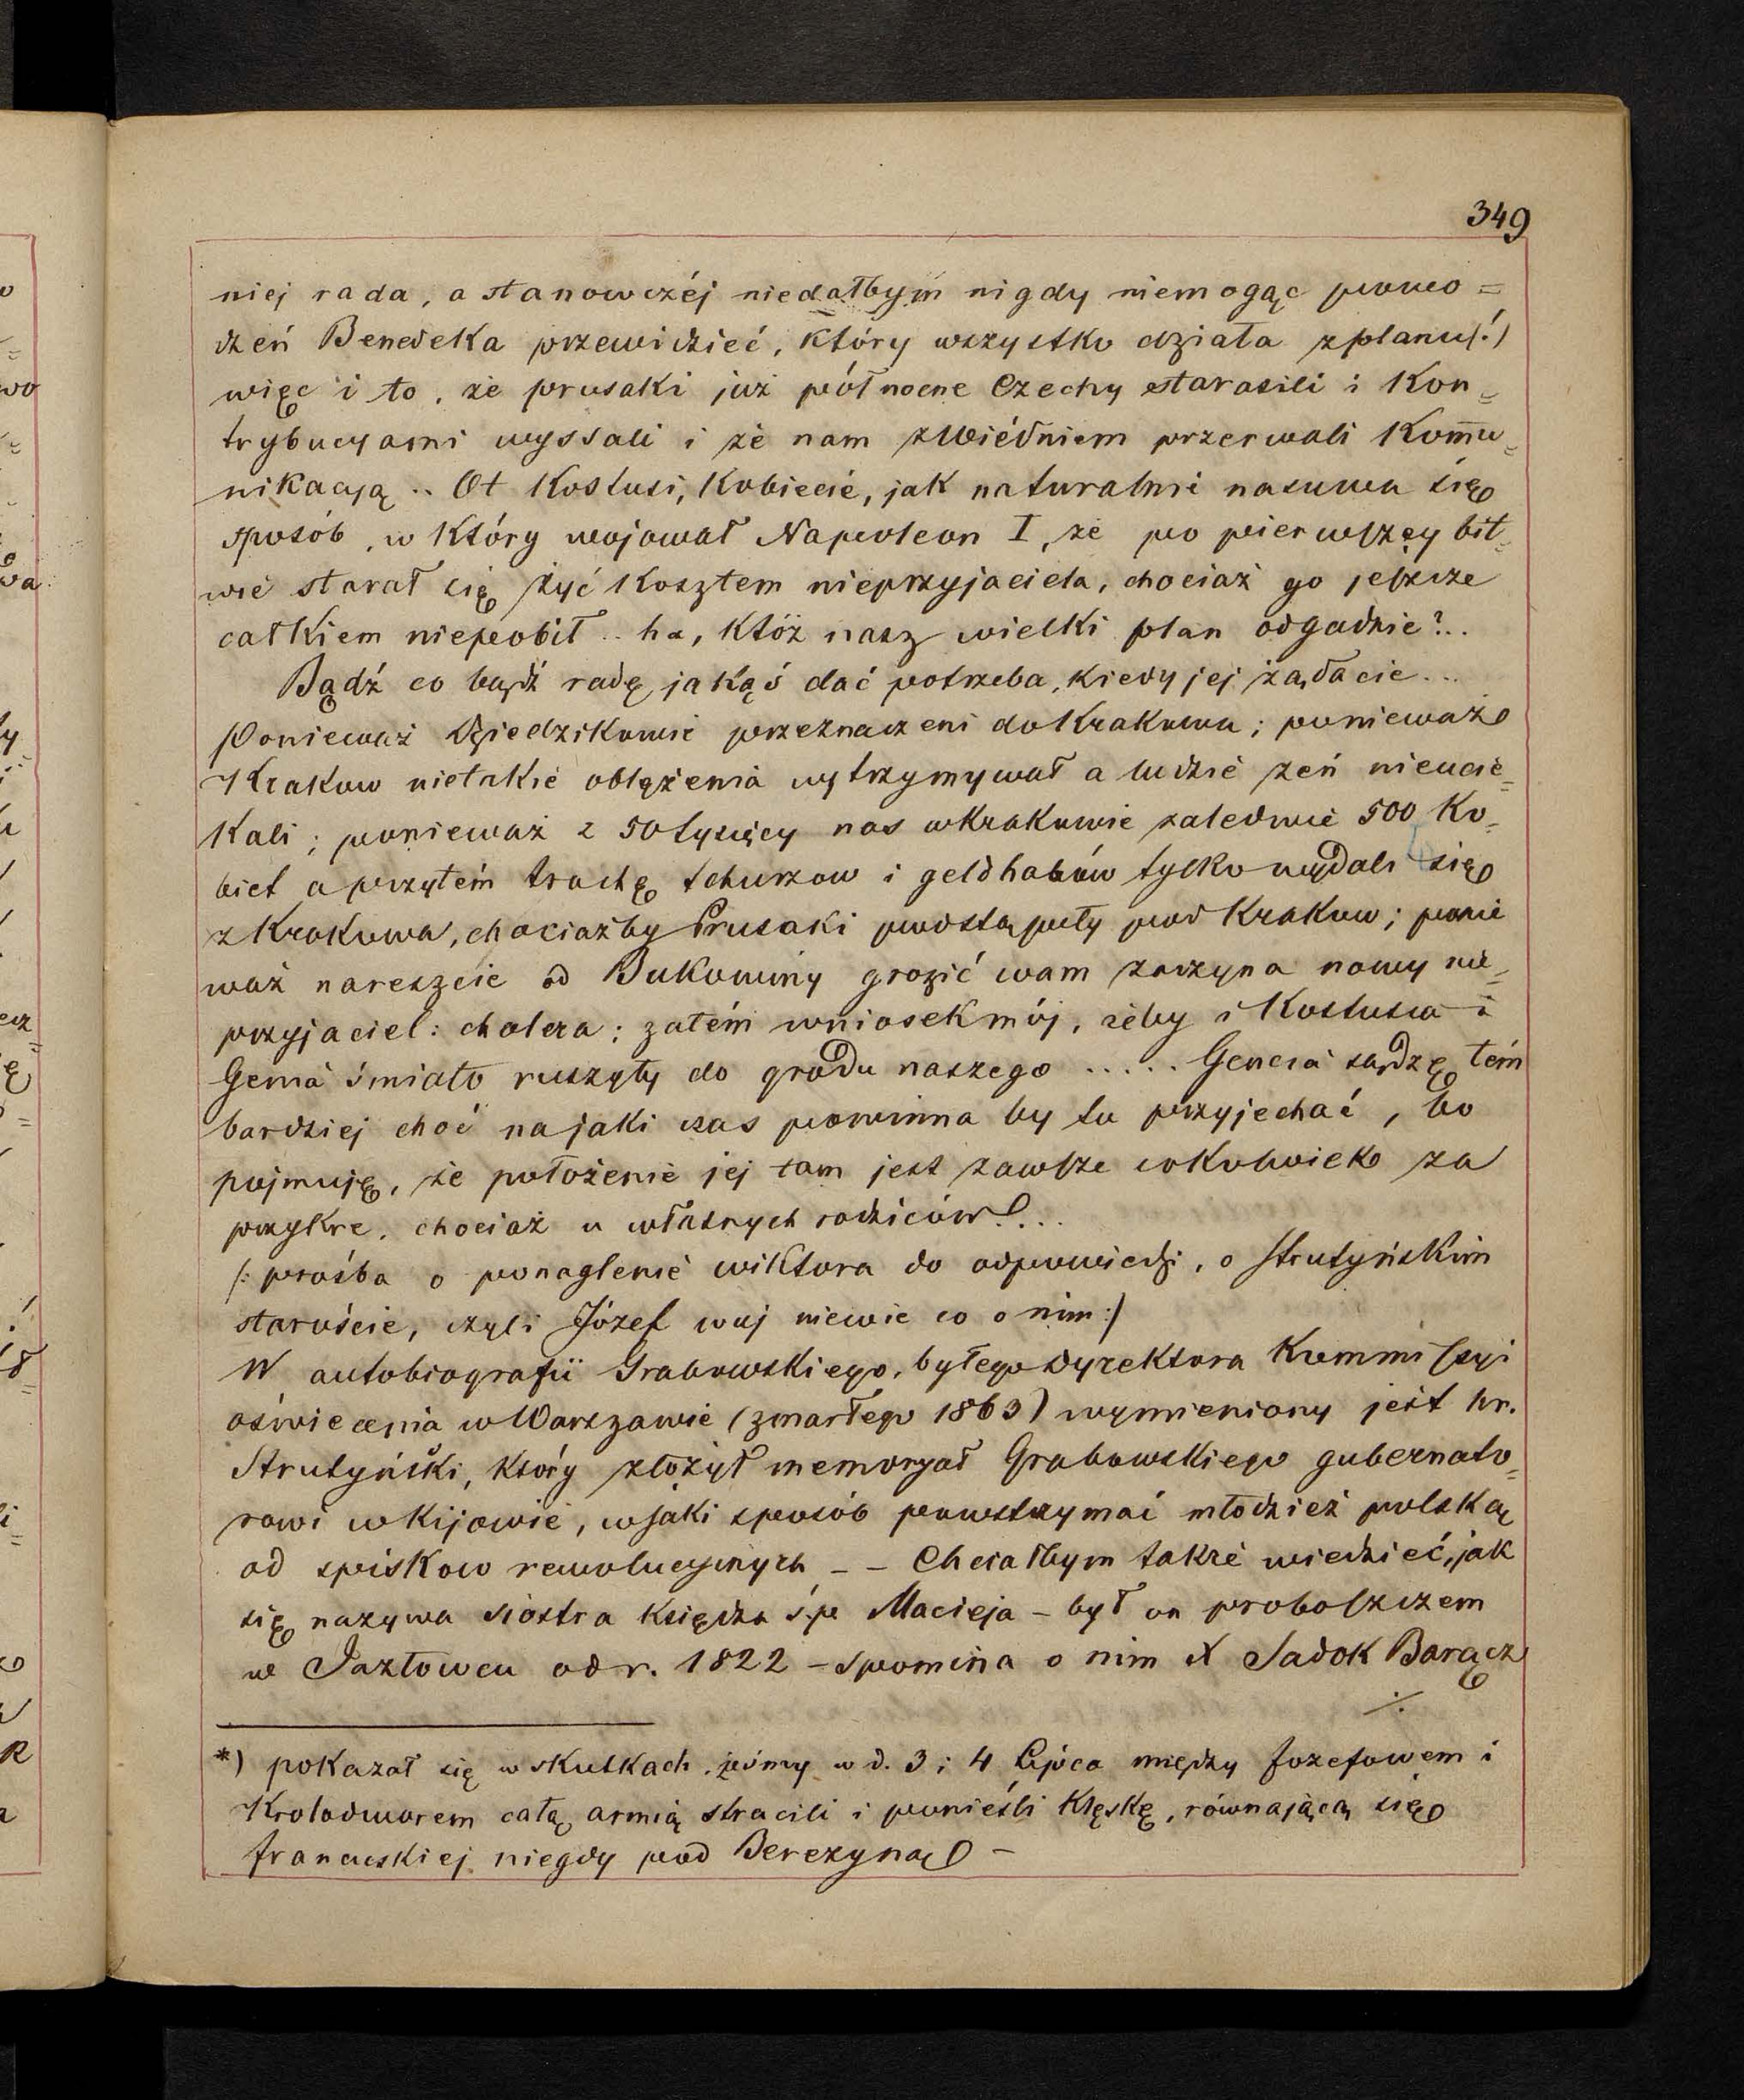 349
niej rada, a stanowczéj niedałbym nigdy niemogąc powo=
dzeń Benedeka przewidzieć, który wszystko działa z planu(!)
więc i to, że prusaki już północne Czechy starasili i kon=
trybucyami wyssali i że nam z Wiédniem przerwali komu=
nikacyą .. Ot Kostusi, kobiecie, jak naturalnie nasuwa się
sposób, w który wojował Napoleon I, że po pierwszej bit=
wie starał się żyć kosztem nieprzyjaciela, chociaż go jeszcze
całkiem niepobił .. ha, któż nasz wielki plan odgadnie?..
Bądź co bądź radę jakąś dać potrzeba, kiedy jej żądacie...
Ponieważ Dziedzikowie przeznaczeni do Krakowa; ponieważ
Krakow nietakie oblężenia wytrzymywał a ludzie zeń nieucie=
kali; ponieważ z 50 tysięcy nas w Krakowie zaledwie 500 ko=
biet a przytém trochę tchurzow i geldhabów tylko wydali się
z Krakowa, chociażby Prusaki podstąpiły pod Krakow; ponie
waż nareszcie od Bukowiny grozić wam zaczyna nowy nie=
przyjaciel: cholera; zatém wniosek mój, żeby i Kostusia i
Genia śmiało ruszyły do grodu naszego ..... Gencia sądzę tém
bardziej choć na jaki czas powinna by tu przyjechać, bo
pojmuję, że położenie jej tam jest zawsze cokolwiek za
przykre, chociaż u własnych rodziców!...
(: prośba o ponaglenie wiktora do odpowiedzi, o Strutyńskim
staroście, czyli Józef wuj niewie co o nim:)
W autobiografii Grabowskiego, byłego dyrektora Kommissyi
oświecenia w Warszawie (zmarłego 1863) wymieniony jest hr.
Strutyński, który złożył memoryał Grabowskiego gubernato=
rowi w Kijowie, w jaki sposób powstrzymać młodzież polską
od spiskow rewolucyjnych - - Chciałbym także wiedzieć, jak
się nazywa siostra księdza ś.p. Macieja - był on proboszczem
w Jazłowcu od r. 1822 - spomina o nim X Sadok Barącz
./.
*) pokazał się w skutkach, jeśmy w d. 3 i 4 Lipca między Jozefowem i
Krolodworem całą armią stracili i ponieśli klęskę, równającą się
francuskiej niegdy pod Berezyną -